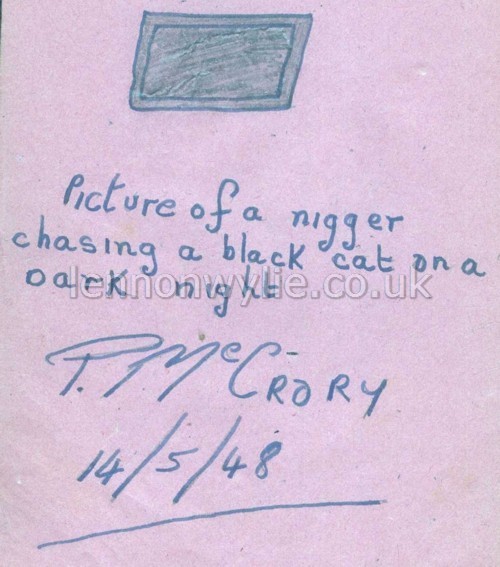 Picture of a nigger
chasing a black cat on a
Dark night
lennonwylie.co.uk
P. McCRORY
14/5/48